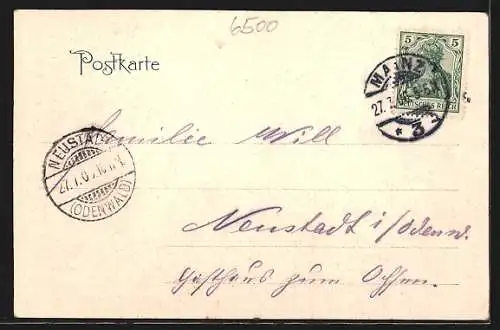 6500
Postkarte
5
MAINZ
27.7.
DEUTSCHES REICH
* 3
Familie Will
NEUSTADT
27.7.0
(ODENWALD)
Neustadt i/Odenw.
Gasthaus zum Ochsen.